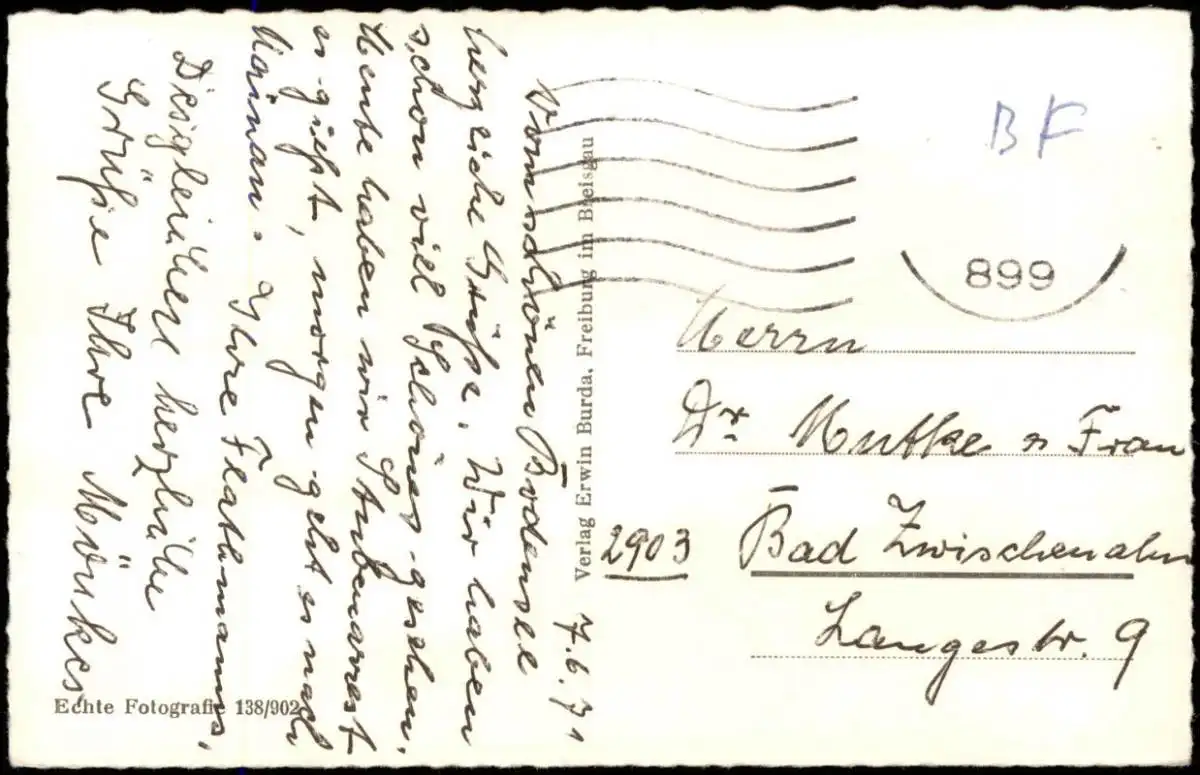 7.6.71
Vom schönen Bodensee
herzliche Grüße. Wir haben
schon viel Schönes gesehen.
Heute haben wir Stubenarrest
es gießt, morgen geht es nach
Mainau. Ihre Flathmanns,
Desgleichen herzliche
Grüße Ihre Mönkes
Echte Fotografie 138/902
Verlag Erwin Burda, Freiburg im Breisgau
BF
899
Herrn
Dr. Mutke u Frau
2903 Bad Zwischenahn
Langestr. 9